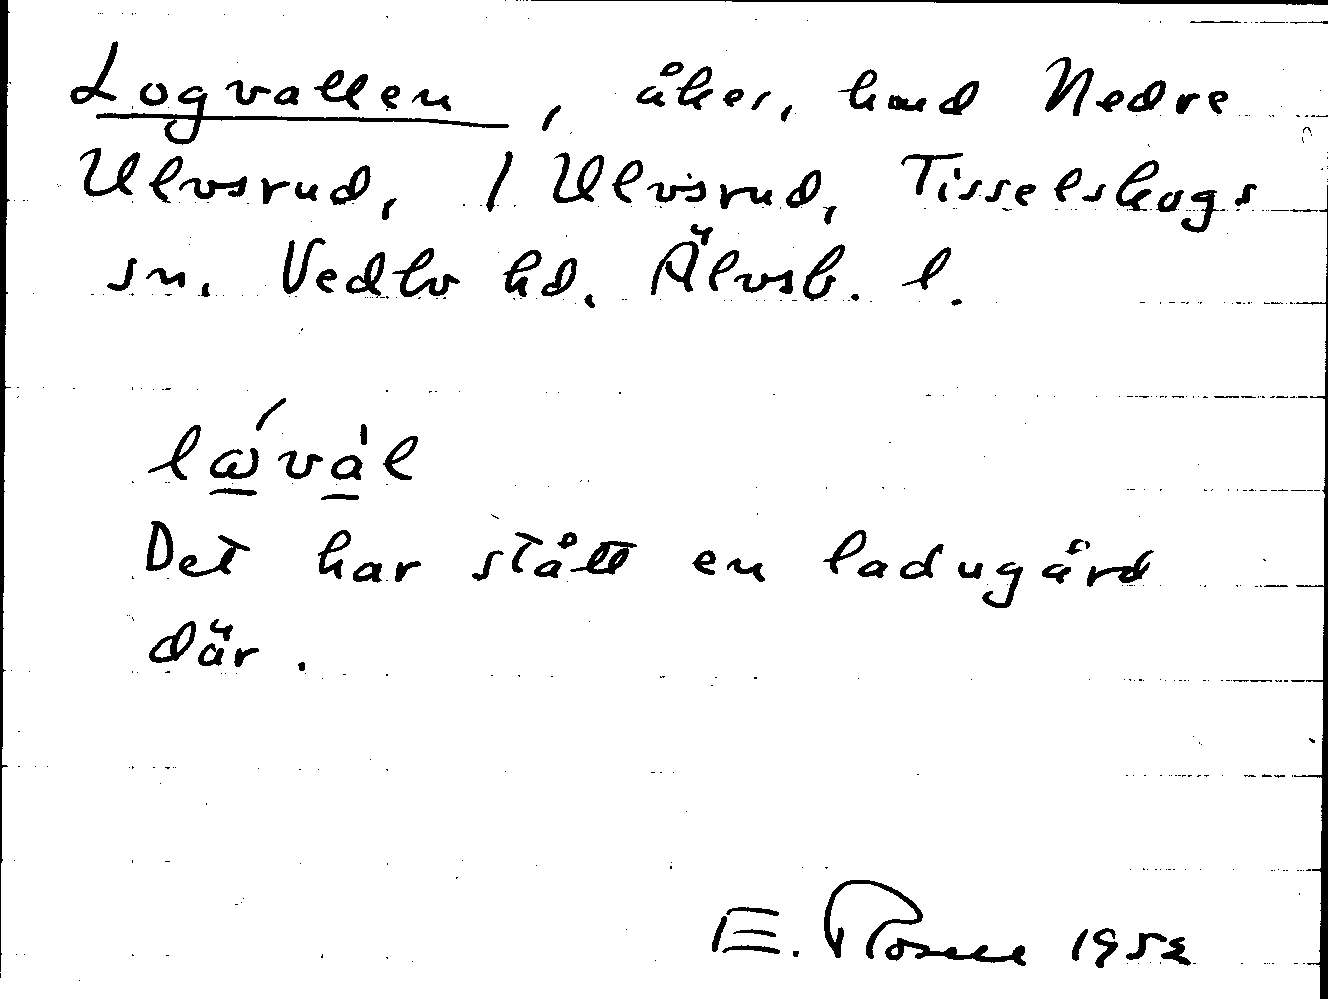 Logvallen, åker, hmd Nedre
Ulvsrud, / Ulvsrud, Tisselskogs
sn. Vedbo hd. Älvsb. l.
Det har stått en ladugård
där.
E. Rosell 1952